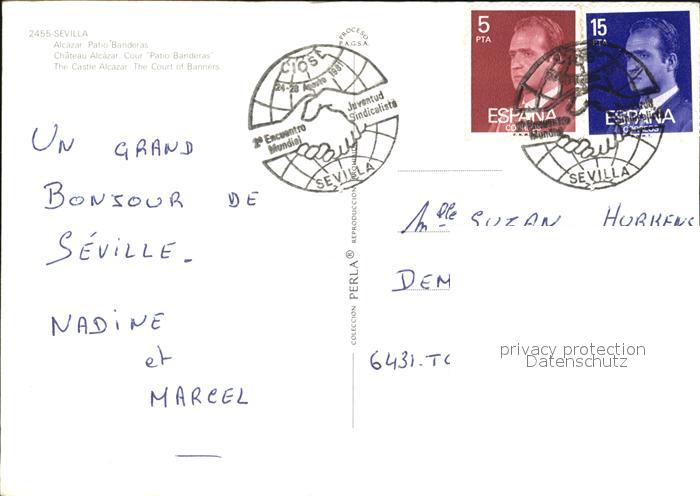 2455-SEVILLA
Alcázar. Patio Banderas
Château Alcázar. Cour "Patio Banderas"
The Castle Alcázar. The Court of Banners.
UN GRAND
BONJOUR DE
SÉVILLE.
NADINE
et
MARCEL
PROCESO
F.A.G.S.A.
COLECCION PERLA® REPRODUCCION
ciosl
24-28 Agosto 1981
2º Encuentro Mundial
Juventud Sindicalista
SEVILLA
5
PTA
ESPAÑA
15
PTA
ESPAÑA
CORREOS
SEVILLA
Mlle SUZAN
DEM
6431.TC
privacy protection
Datenschutz